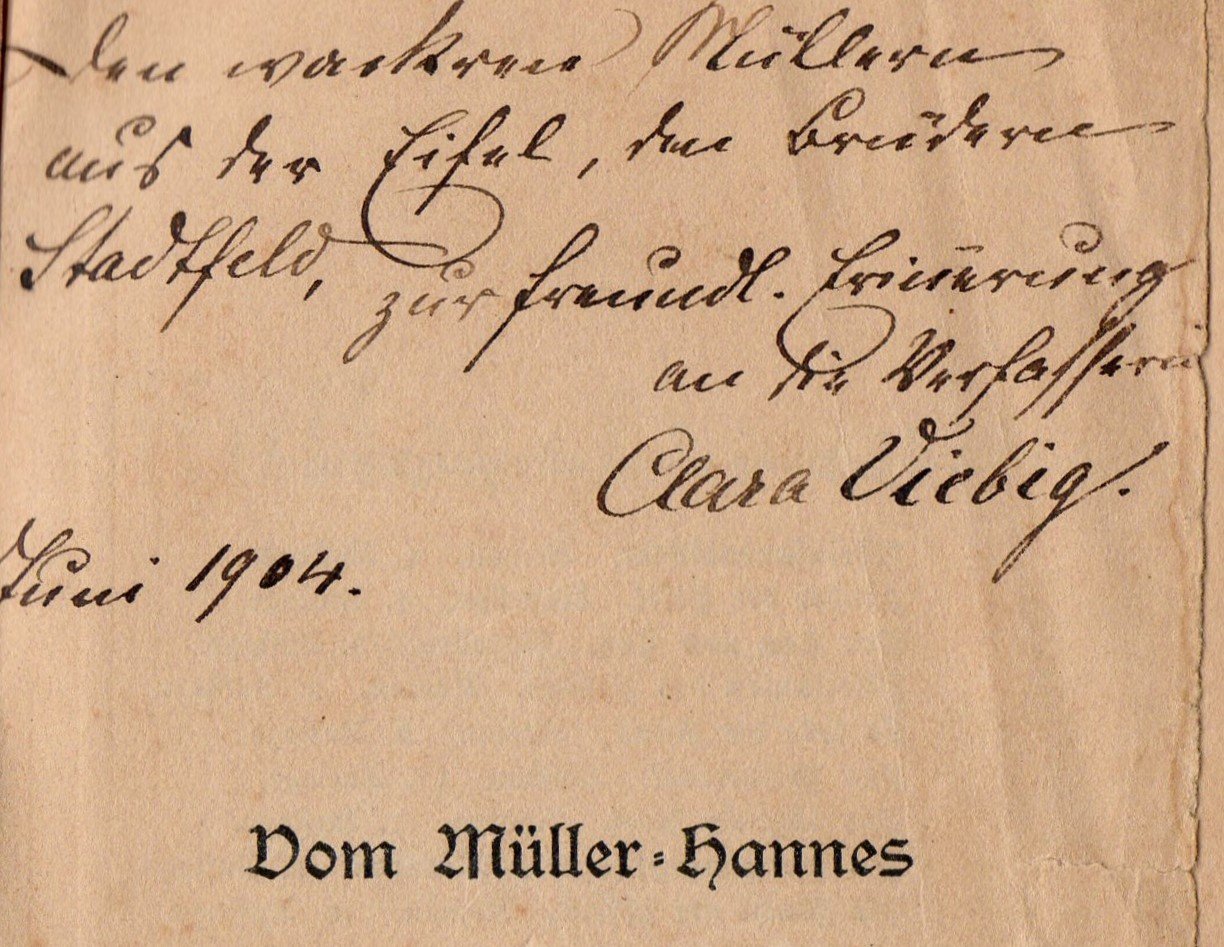 Den wackren Müllern
aus der Eifel, den Brüdern
Stadtfeld, zur freundl. Erinnerung
an die Verfasserin
Clara Viebig.
Juni 1904.
Vom Müller-Hannes